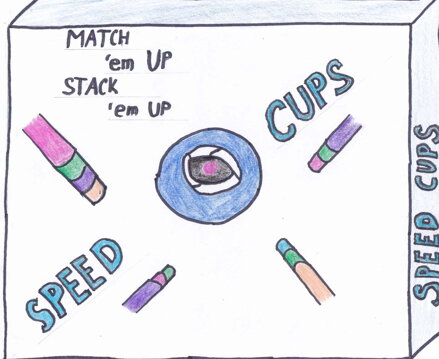 MATCH
'em UP
STACK
'em UP
CUPS
SPEED
SPEED CUPS